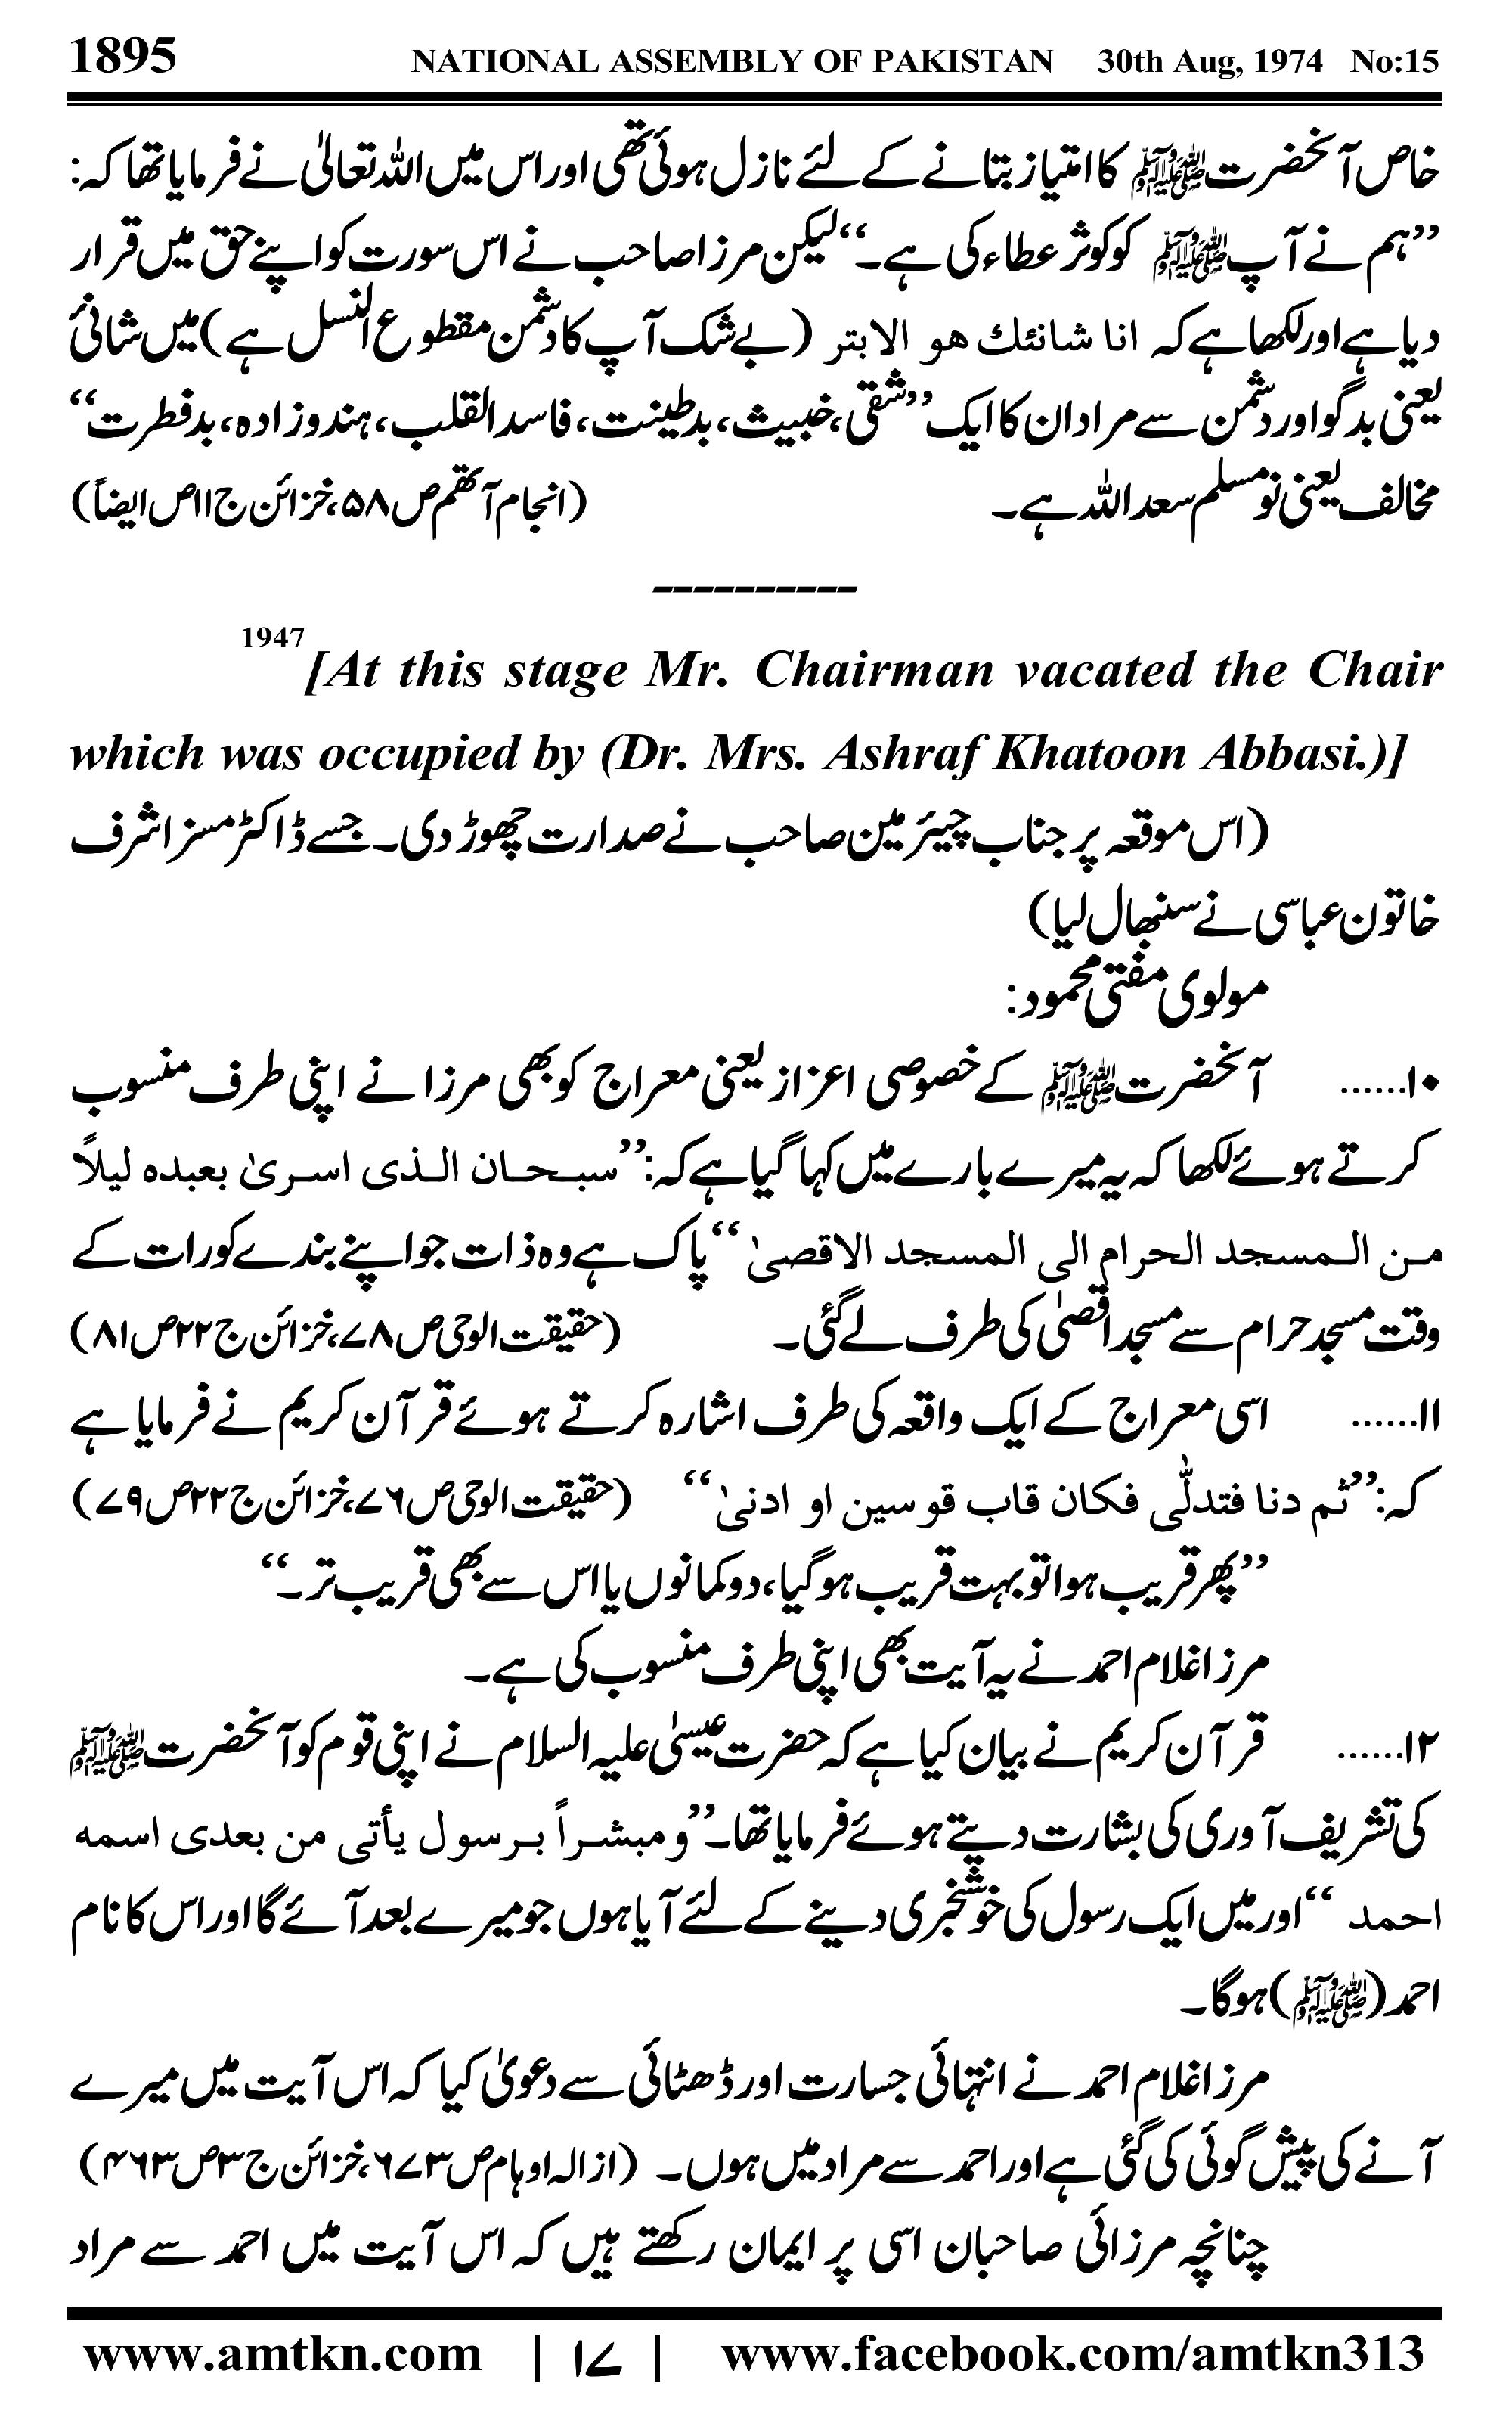 1895 NATIONAL ASSEMBLY OF PAKISTAN 30th Aug, 1974 No:15
خاص آنحضرتﷺ کا امتیاز بتانے کے لئے نازل ہوئی تھی اور اس میں اللہ تعالیٰ نے فرمایا تھا کہ:
’’ہم نے آپﷺ کو کوثر عطاء کی ہے۔‘‘ لیکن مرزا صاحب نے اس سورت کو اپنے حق میں قرار
دیا ہے اور لکھا ہے کہ انا شانئك هو الابتر (بے شک آپ کا دشمن مقطوع النسل ہے) میں شانئ
یعنی بدگو اور دشمن سے مراد ان کا ایک ’’شقی، خبیث، بدطینت، فاسد القلب، ہندوزادہ، بدفطرت‘‘
مخالف یعنی نومسلم سعد اللہ ہے۔ (انجام آتھم ص۵۸، خزائن ج۱۱ص ایضاً)
----------
1947[At this stage Mr. Chairman vacated the Chair
which was occupied by (Dr. Mrs. Ashraf Khatoon Abbasi.)]
(اس موقعہ پر جناب چیئرمین صاحب نے صدارت چھوڑ دی۔ جسے ڈاکٹر مسز اشرف
خاتون عباسی نے سنبھال لیا)
مولوی مفتی محمود:
۱۰...... آنحضرتﷺ کے خصوصی اعزاز یعنی معراج کو بھی مرزا نے اپنی طرف منسوب
کرتے ہوئے لکھا کہ یہ میرے بارے میں کہا گیا ہے کہ: ’’سبحان الذی اسریٰ بعبده لیلاً
من المسجد الحرام الی المسجد الاقصیٰ‘‘ پاک ہے وہ ذات جو اپنے بندے کو رات کے
وقت مسجد حرام سے مسجد اقصیٰ کی طرف لے گئی۔ (حقیقت الوحی ص۷۸، خزائن ج۲۲ص۸۱)
۱۱...... اسی معراج کے ایک واقعہ کی طرف اشارہ کرتے ہوئے قرآن کریم نے فرمایا ہے
کہ: ’’ثم دنا فتدلّٰی فکان قاب قوسین او ادنیٰ‘‘ (حقیقت الوحی ص۷۶، خزائن ج۲۲ص۷۹)
’’پھر قریب ہوا تو بہت قریب ہوگیا، دو کمانوں یا اس سے بھی قریب تر۔‘‘
مرزا غلام احمد نے یہ آیت بھی اپنی طرف منسوب کی ہے۔
۱۲...... قرآن کریم نے بیان کیا ہے کہ حضرت عیسیٰ علیہ السلام نے اپنی قوم کو آنحضرتﷺ
کی تشریف آوری کی بشارت دیتے ہوئے فرمایا تھا۔ ’’ومبشراً برسول یأتی من بعدی اسمه
احمد‘‘ اور میں ایک رسول کی خوشخبری دینے کے لئے آیا ہوں جو میرے بعد آئے گا اور اس کا نام
احمد(ﷺ) ہوگا۔
مرزا غلام احمد نے انتہائی جسارت اور ڈھٹائی سے دعویٰ کیا کہ اس آیت میں میرے
آنے کی پیش گوئی کی گئی ہے اور احمد سے مراد میں ہوں۔ (ازالہ اوہام ص۶۷۳، خزائن ج۳ص۴۶۳)
چنانچہ مرزائی صاحبان اسی پر ایمان رکھتے ہیں کہ اس آیت میں احمد سے مراد
www.amtkn.com | ۱۷ | www.facebook.com/amtkn313